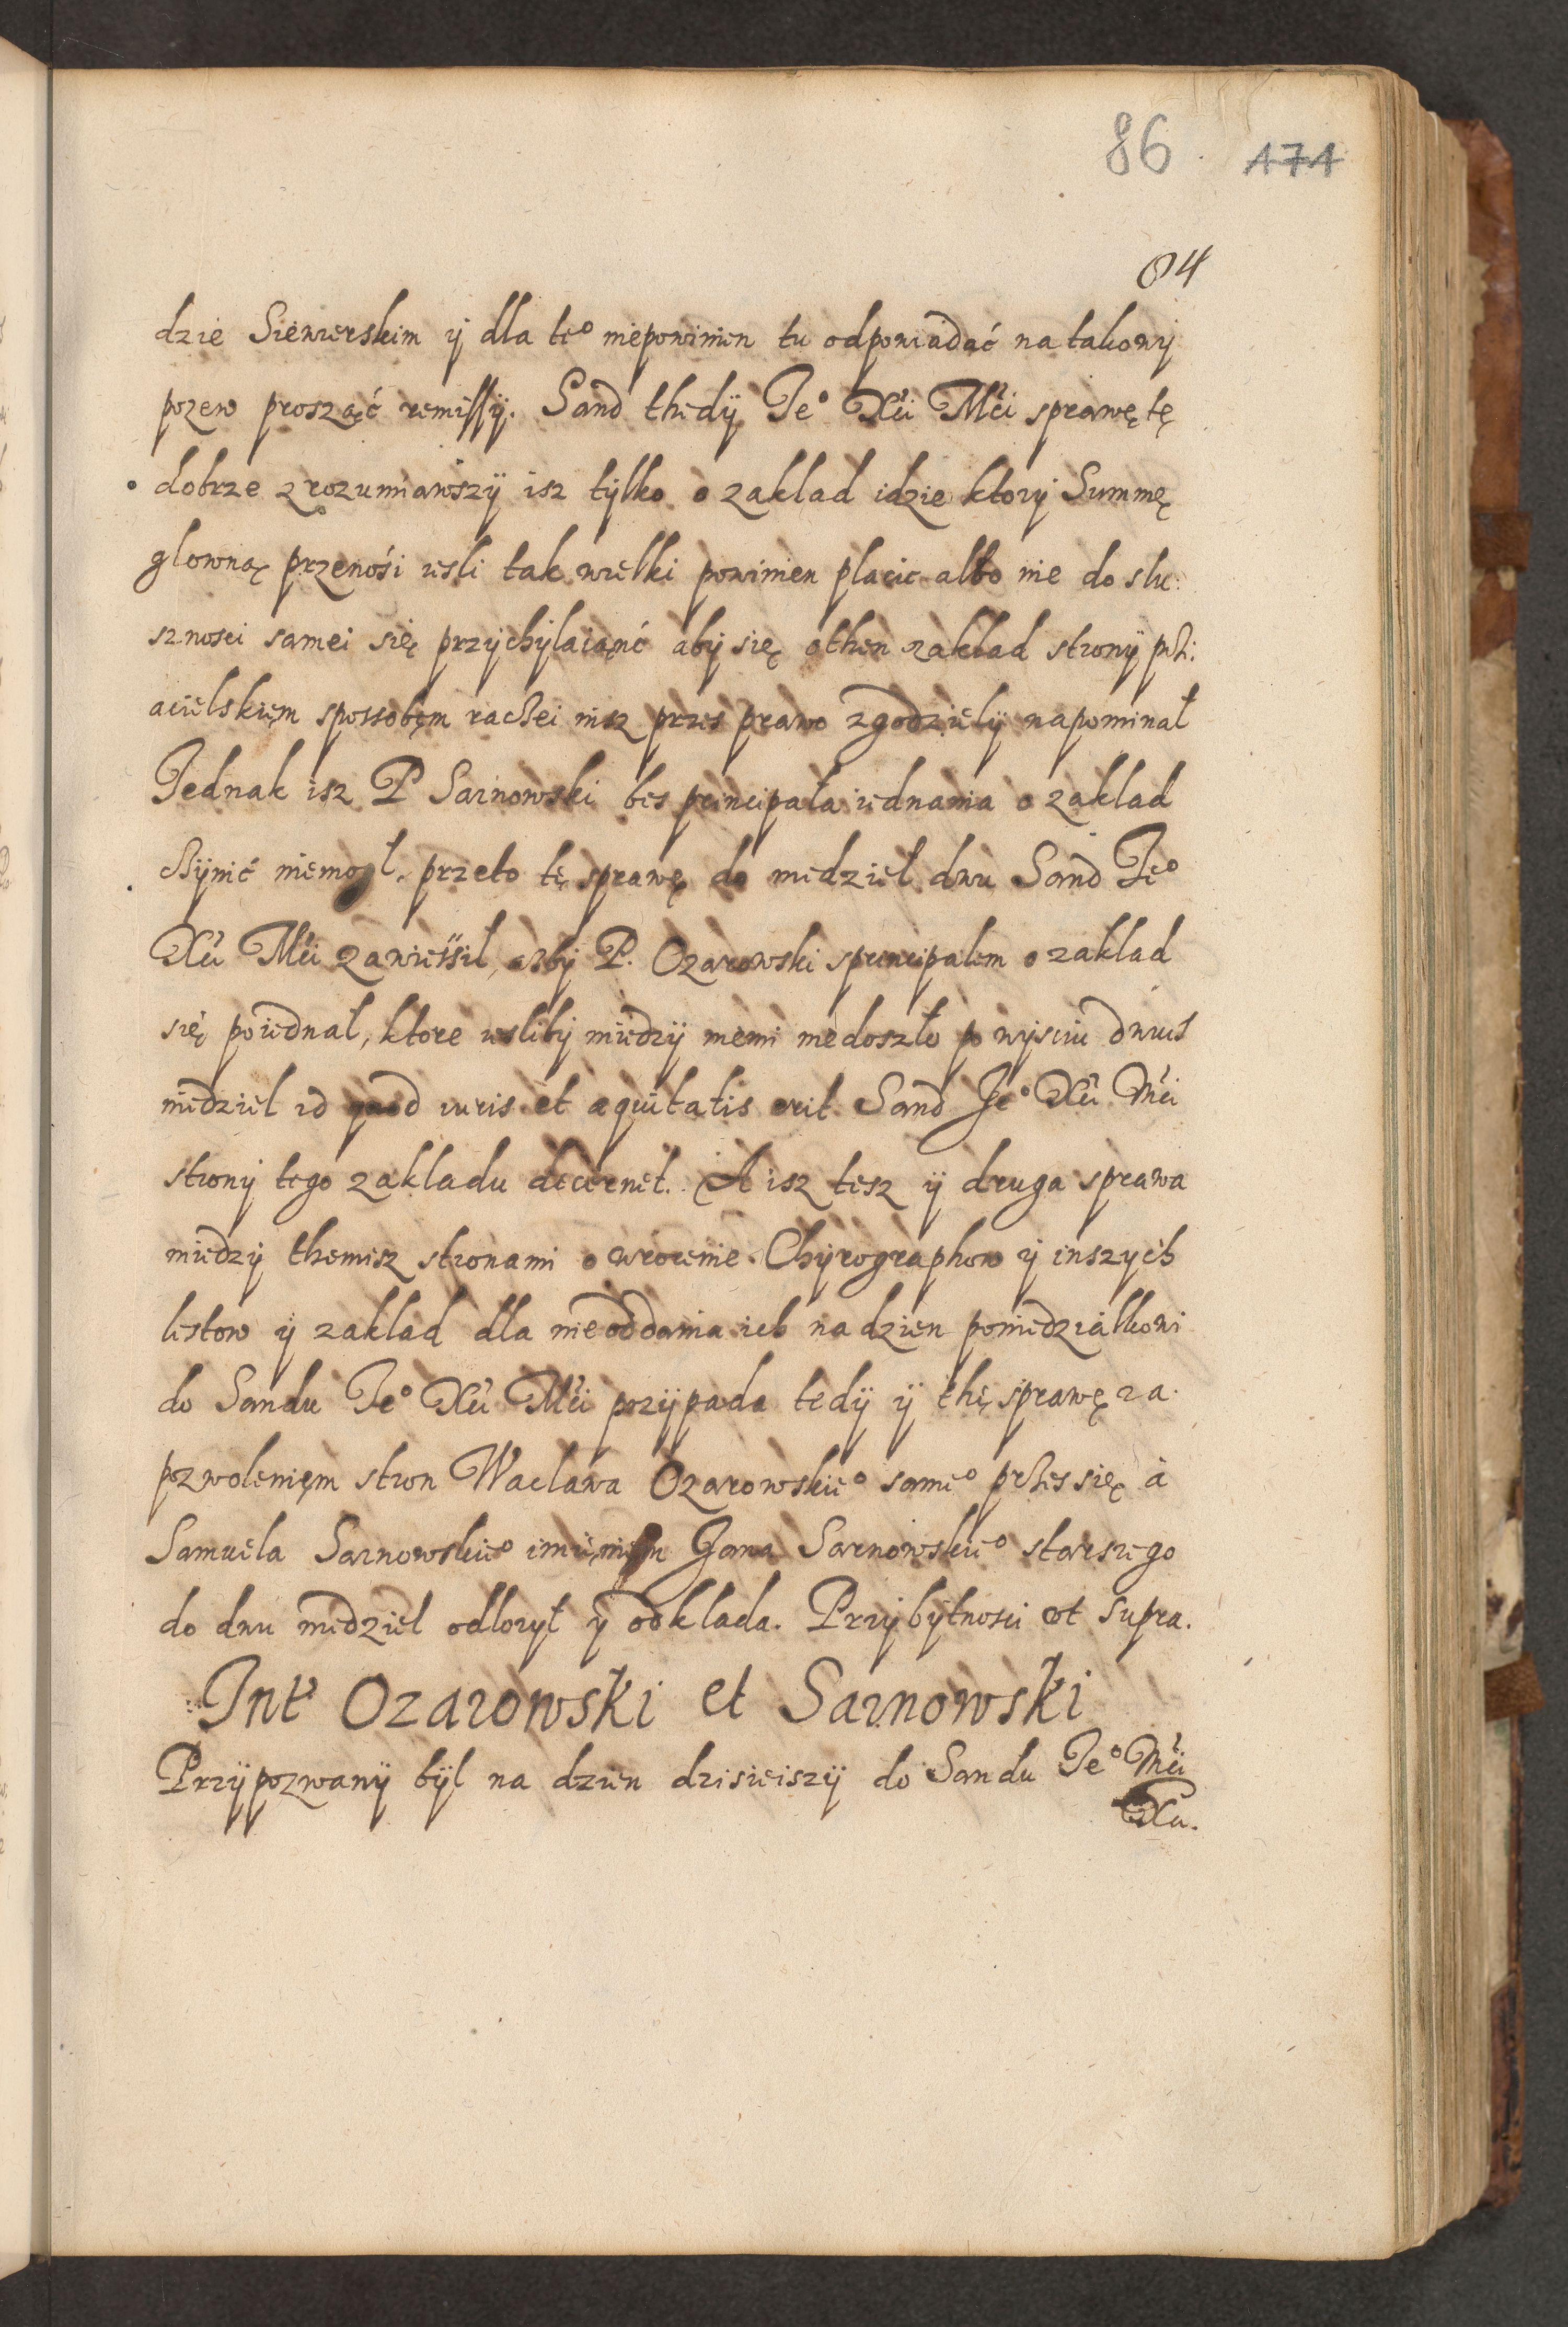 86 171
84
dzie Siewierskim ÿ dla te° niepowinien tu odpowiadać na takowÿ
pozew prosząć remissÿ. Sand thedÿ Je° Xći Mći sprawę tę
dobrze zrozumiawszÿ isz tÿlko o zaklad idzie ktorÿ Summę
glowną przenosi iesli tak wielki powinien placic albo nie do slu:
sznosci samei się przÿchÿlaiąnć abÿ się othen zaklad stronÿ prži:
acielskięm spossobęm raczei nisz przes prawo zgodzielÿ napominał
Jednak isz P Sarnowski bes principała iednania o zaklad
czÿnić niemogł. przeto tę sprawę do niedziel dwu Sand Je°
Xći Mći zawiessil, abÿ P. Ozarowski sprincipalem o zaklad
się poiednal, ktore ieslibÿ miedzÿ niemi niedoszło po wÿsciu dwuch
niedziel id quod iuris et aequitatis erit Sand Je° Xći Mći
stronÿ tego zakladu decernet. A isz tesz ÿ druga sprawa
miedzÿ themisz stronami o wrocenie Chÿrographow ÿ inszÿch
listow ÿ zaklad dla nieoddania ich na dzien poniedziałkowi
do Sandu Je° Xći Mći przÿpada tedÿ ÿ thę sprawę za
pozwolenięm stron Waclawa Ozarowskie° same° przes się a
Samuela Sarnowskie° imieniem Jana Sarnowskie° starszego
do dwu niedziel odlozÿł ÿ odklada. Przÿ bÿtnosci ut supra.
Int' Ozarowski et Sarnowski
Przÿpozwanÿ bÿl na dzien dzisieiszÿ do Sandu Je° Mći
Xći.